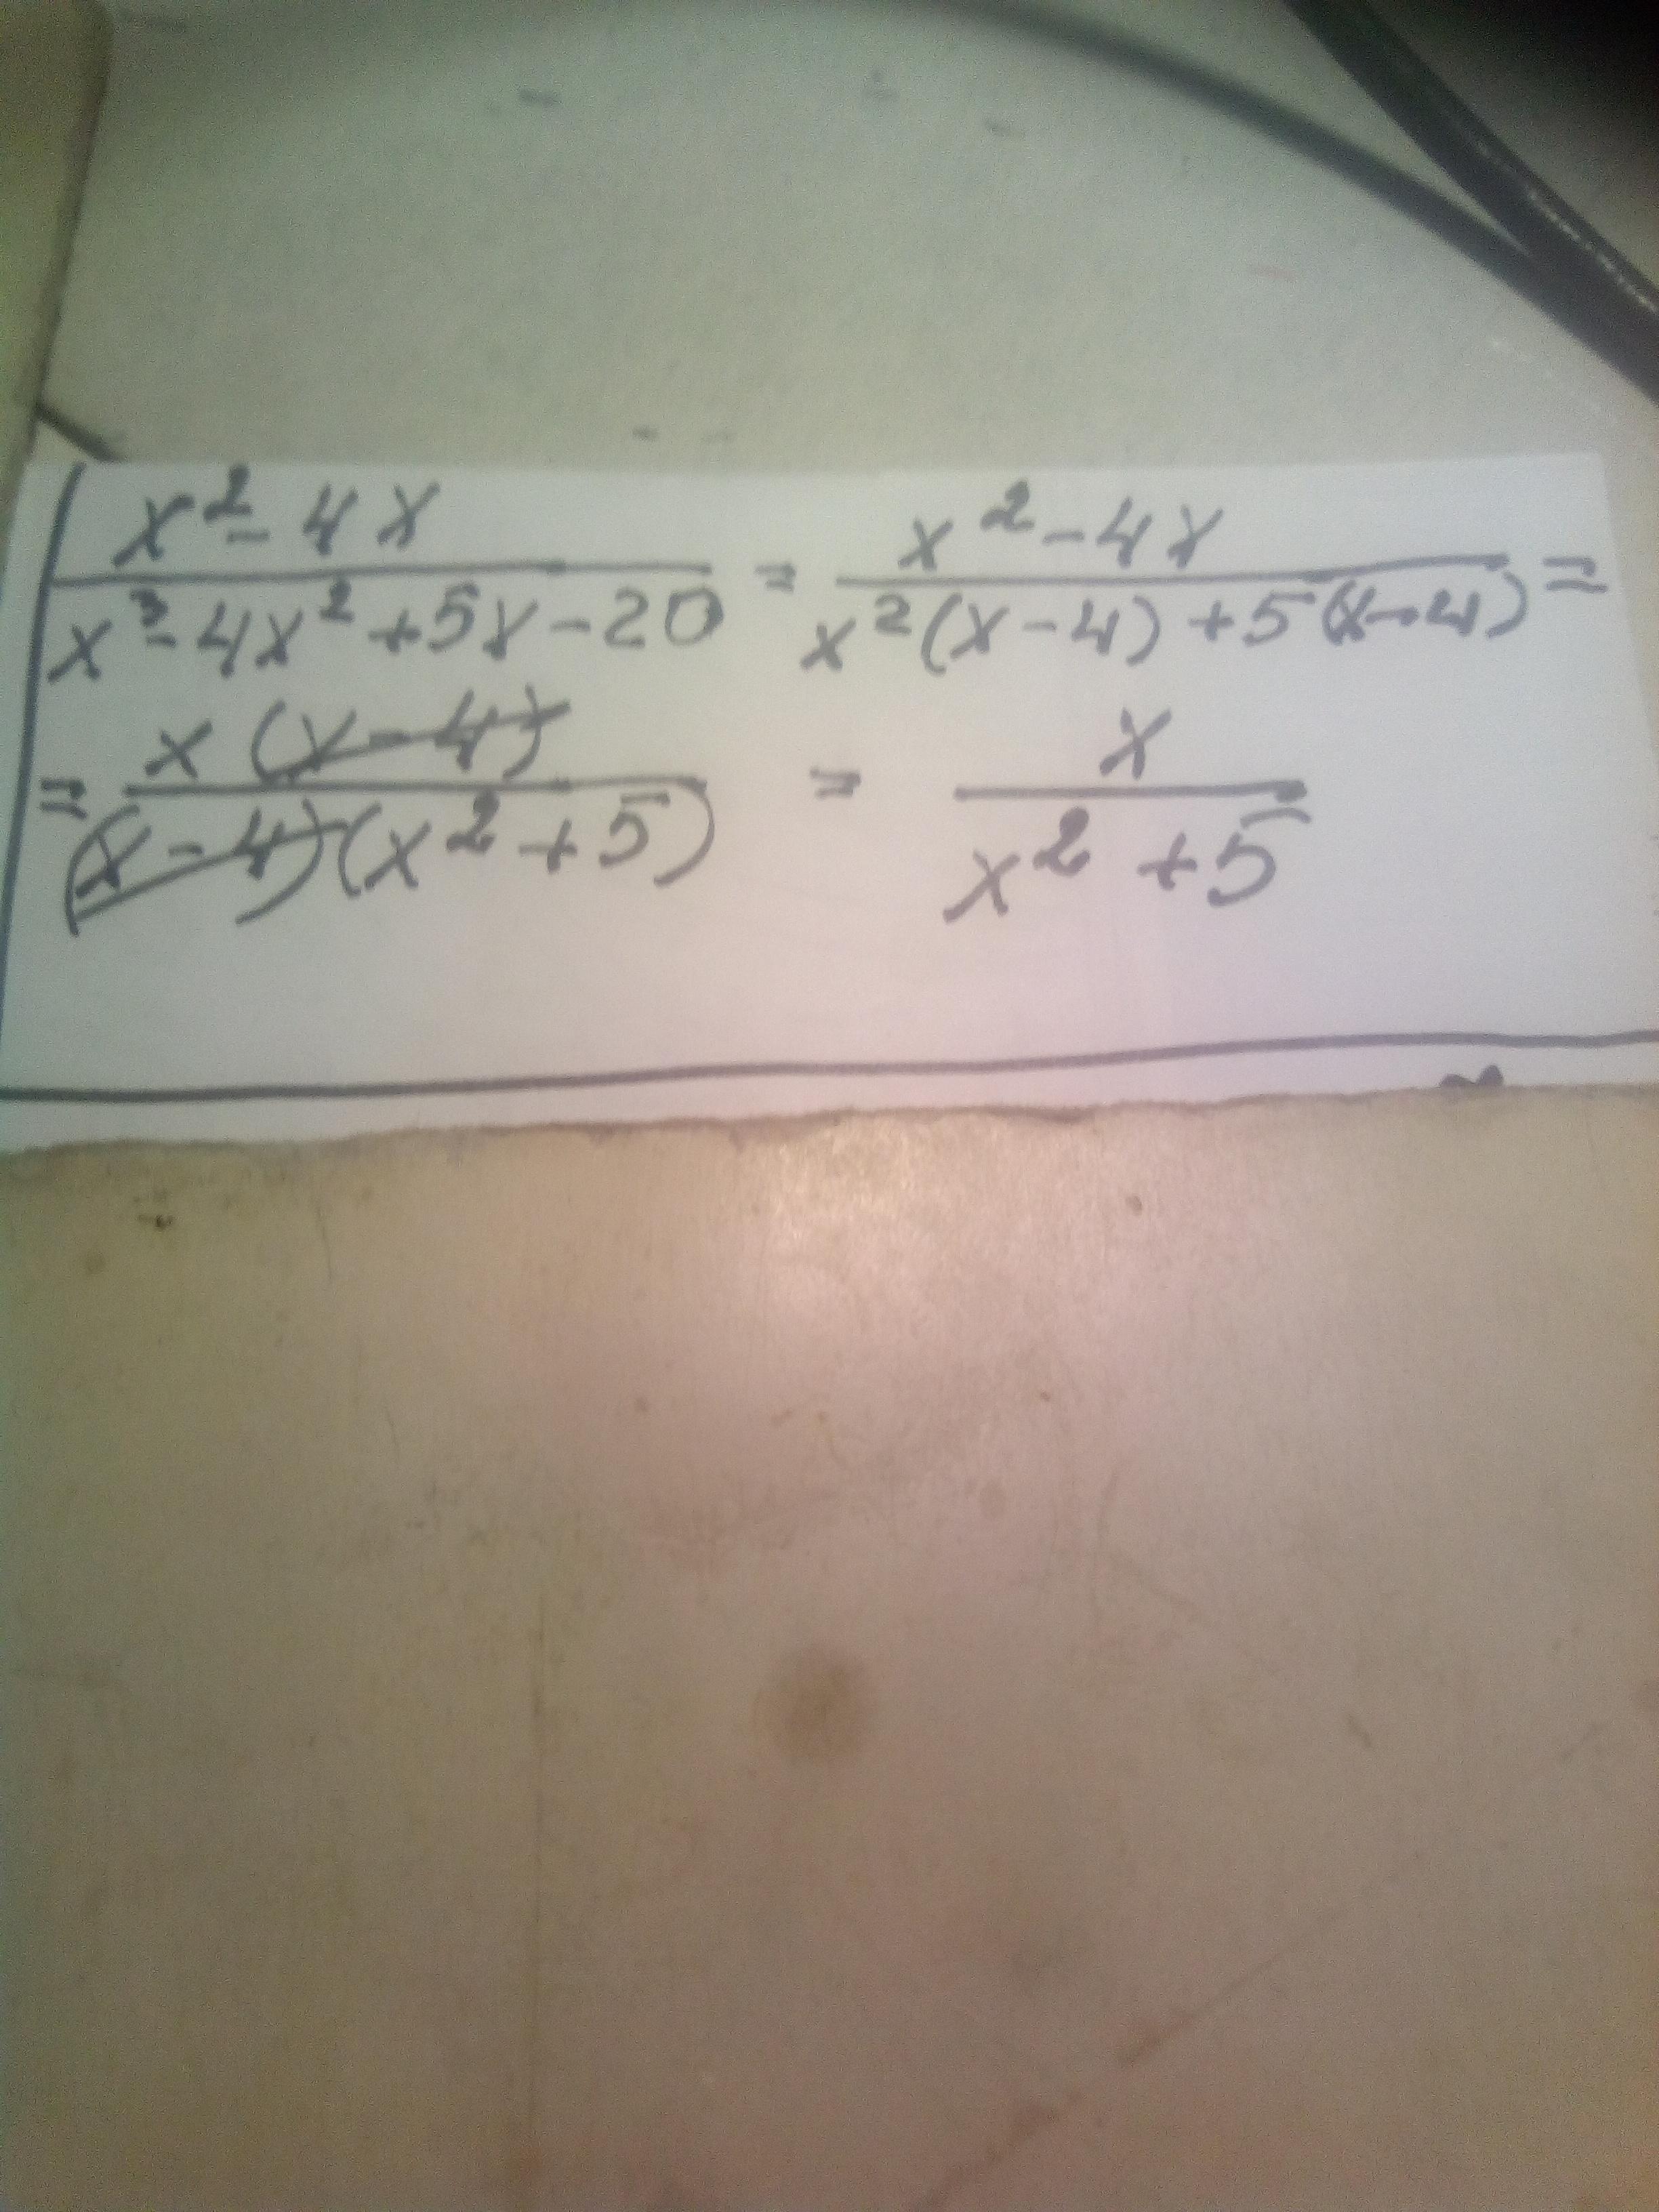 x² - 4x / x³ - 4x² + 5x - 20 = x² - 4x / x²(x - 4) + 5(x - 4) =
= x(x - 4) / (x - 4)(x² + 5) = x / x² + 5